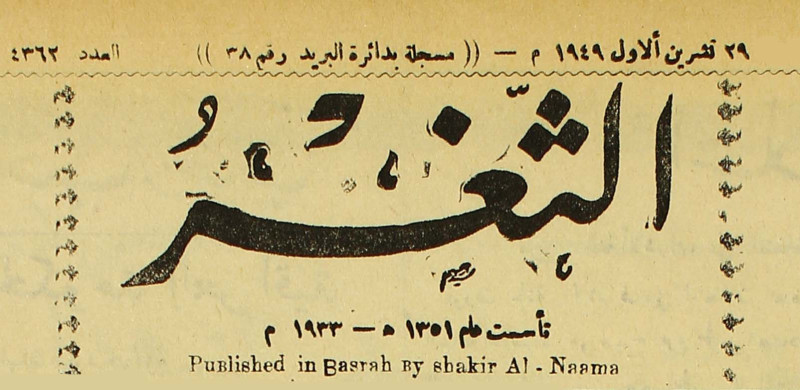 ٢٩ تشرين ألاول ١٩٤٩ م — (( مسجلة بدائرة البريد رقم ٣٨ )) العدد ٤٣٦٢
الثَّغْر
تأسست عام ١٣٥١ ه — ١٩٣٣ م
Published in Basrah By shakir Al - Naama